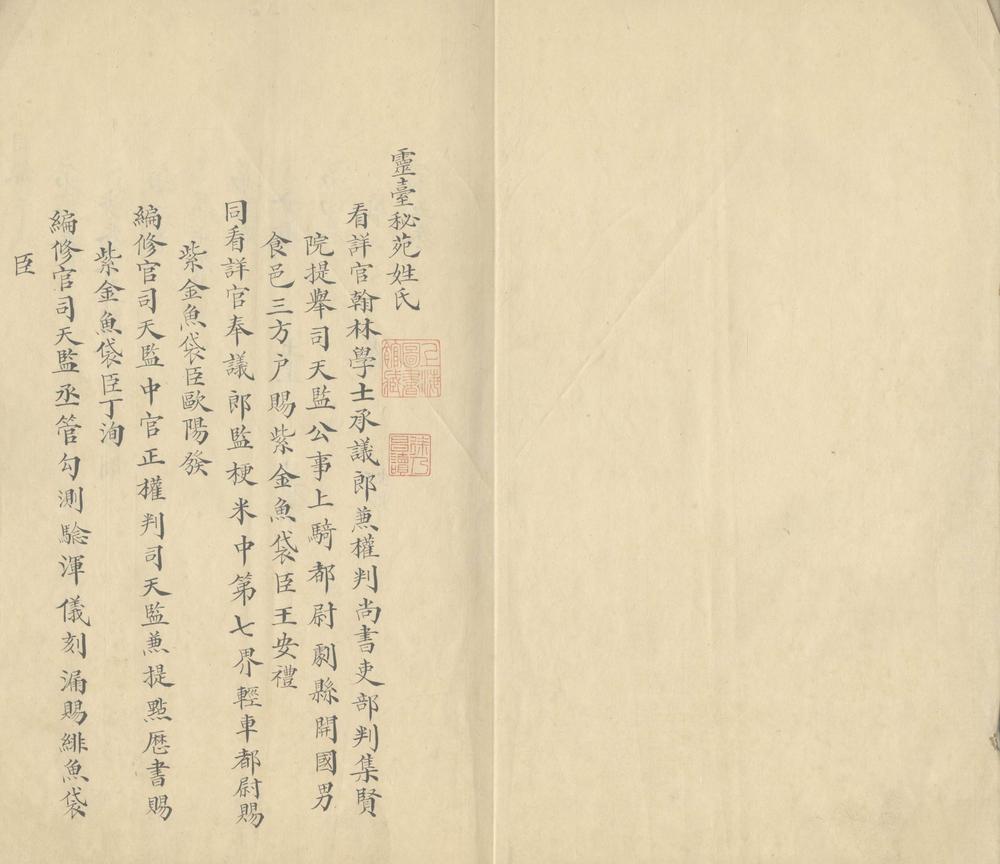 靈臺秘苑姓氏
看詳官翰林學士承議郎兼權判尚書吏部判集賢
院提舉司天監公事上騎都尉劇縣開國男
食邑三方户賜紫金魚袋臣王安禮
同看詳官奉議郎監梗米中第七界輕車都尉賜
紫金魚袋臣歐陽發
編修官司天監中官正權判司天監兼提點厯書賜
紫金魚袋臣丁洵
編修官司天監丞管勾測驗渾儀刻漏賜緋魚袋
臣
上海圖書館藏